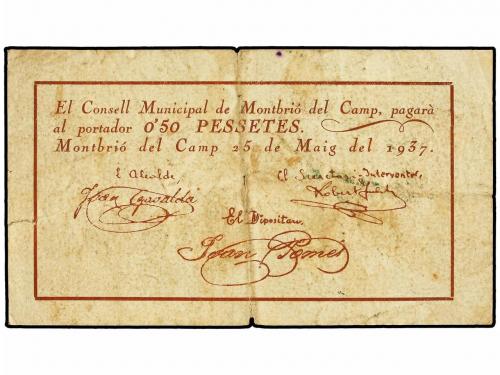 El Consell Municipal de Montbrió del Camp, pagarà
al portador 0'50 PESSETES.
Montbrió del Camp 25 de Maig del 1937.
L'Alcalde El Secretari-Interventor,
Joan
El Dipositari,
Joan Pomés